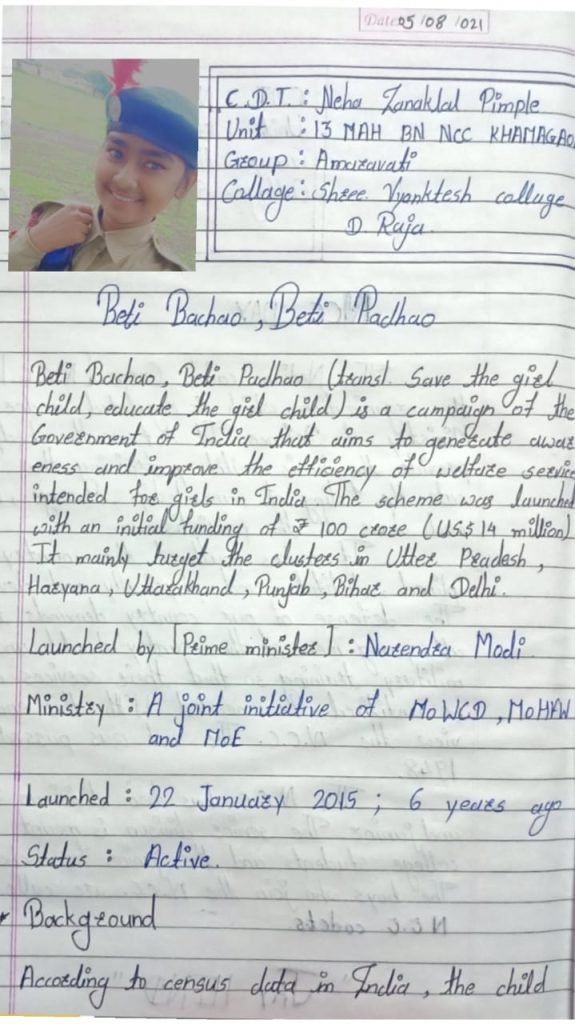 Date: 05 / 08 / 021
C.D.T. : Neha Zanaklal Pimple
Unit : 13 MAH BN NCC KHAMAGAO
Group : Amaravati
Collage : Shree. Vyanktesh colluge
D. Raja.
Beti Bachao, Beti Padhao
Beti Bachao, Beti Padhao (transl. Save the girl
child, educate the girl child) is a campaign of the
Government of India that aims to generate awar
eness and improve the efficiency of welfare service
intended for girls in India The scheme was launched
with an initial funding of ₹ 100 crore (US$ 14 million)
It mainly turget the clusters in Utter Pradesh,
Haryana, Uttarakhand, Punjab, Bihar and Delhi.
Launched by [Prime minister] : Narendra Modi
Ministry : A joint initiative of MoWCD, MoHFW
and MoE
Launched : 22 January 2015 ; 6 years ago
Status : Active.
Background
According to census data in India, the child